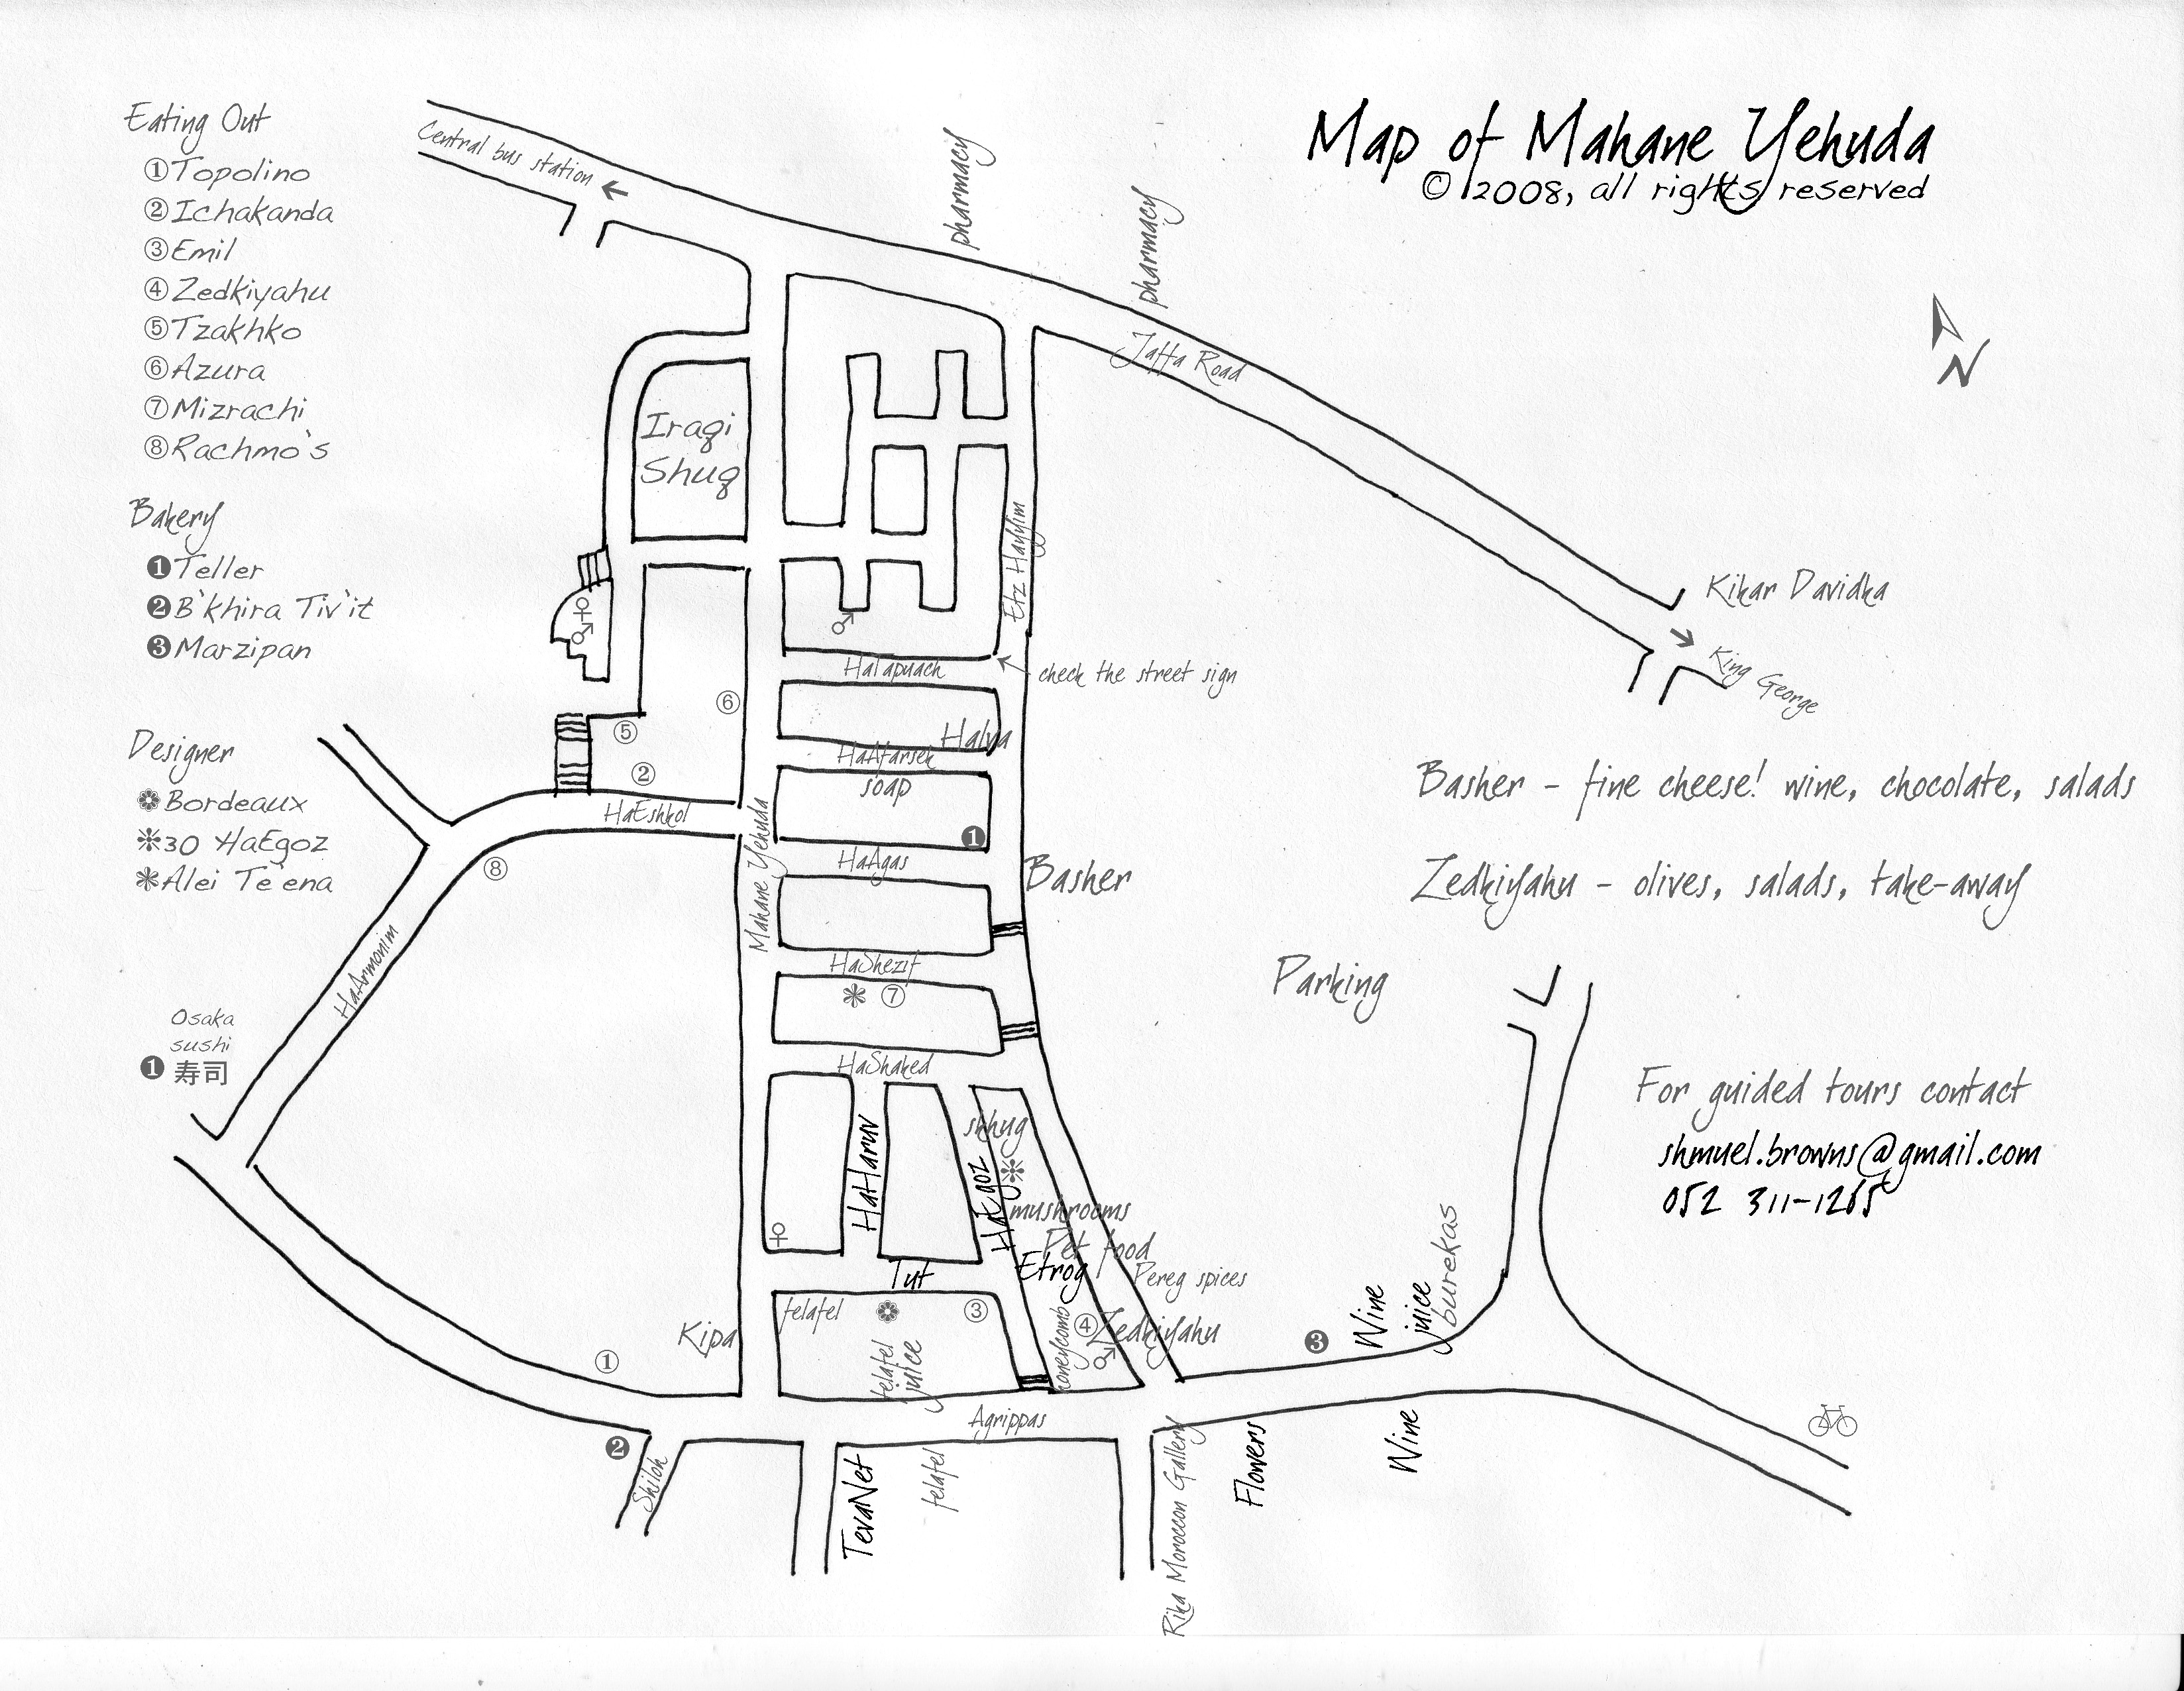 Map of Mahane Yehuda
© 2008, all rights reserved
Eating Out
①Topolino
②Ichakanda
③Emil
④Zedkiyahu
⑤Tzakhko
⑥Azura
⑦Mizrachi
⑧Rachmo's
Bakery
❶Teller
❷B'khira Tiv'it
❸Marzipan
Designer
❁Bordeaux
❊30 HaEgoz
❃Alei Te'ena
Osaka
sushi
❶ 寿司
Central bus station ←
pharmacy
pharmacy
Jaffa Road
N
Iraqi
Shuq
Etz Hayyim
Kikar Davidka
King George
HaTapuach
check the street sign
⑥
⑤
②
Halva
HaAfarsek
soap
❶
HaEshkol
⑧
Mahane Yehuda
HaAgas
Basher
Basher - fine cheese! wine, chocolate, salads
Zedkiyahu - olives, salads, take-away
HaArmonim
HaShezif
❃ ⑦
Parking
HaShaked
HaHaruv
HaEgoz
skhug
❊
mushrooms
Pet food
Etrog
Pereg spices
Tut
felafel
❁
③
felafel
juice
honeycomb
④
Zedkiyahu
Kipa
①
❸
Wine
juice
burekas
For guided tours contact
shmuel.browns@gmail.com
052 311-1265
Agrippas
❷
Shiloh
TevaNet
felafel
Rika Moroccan Gallery
Flowers
Wine